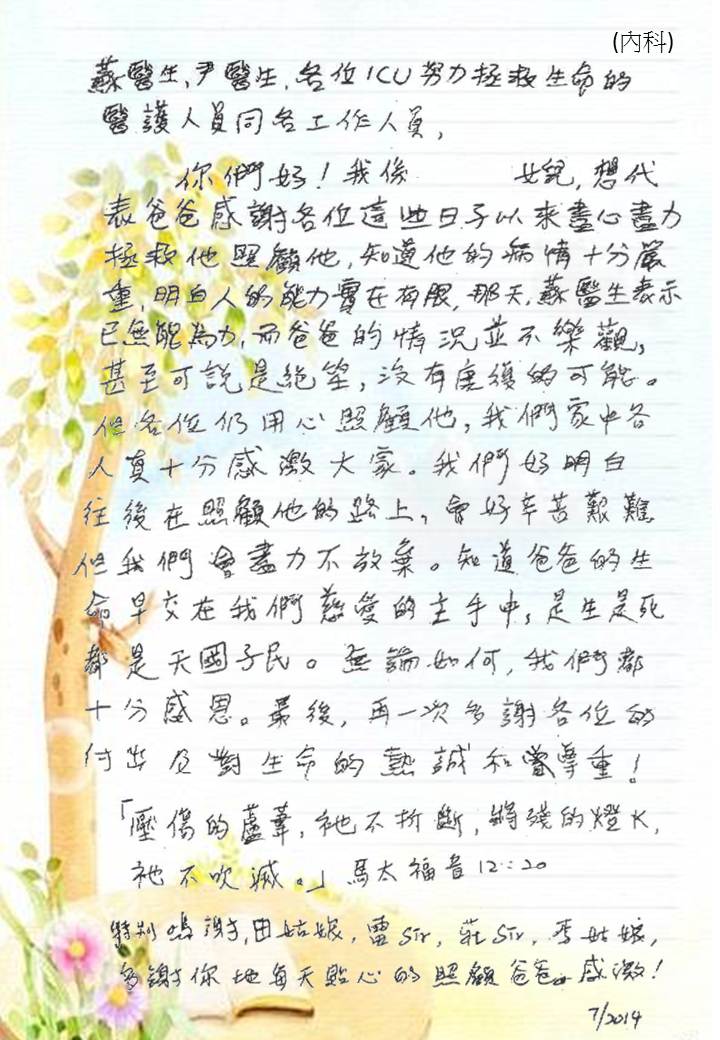 (內科)
蘇醫生,尹醫生,各位ICU努力拯救生命的
醫護人員同各工作人員,
你們好!我係 女兒,想代
表爸爸感謝各位這些日子以來盡心盡力
拯救他照顧他,知道他的病情十分嚴
重,明白人的能力實在有限,那天,蘇醫生表示
已無能為力,而爸爸的情況並不樂觀,
甚至可說是絕望,沒有康復的可能。
但各位仍用心照顧他,我們家中各
人員十分感激大家。我們好明白
往後在照顧他的路上,會好辛苦艱難
但我們會盡力不放棄。知道爸爸的生
命早交在我們慈愛的主手中,是生是死
都是天國子民。無論如何,我們都
十分感恩。最後,再一次多謝各位的
付出及對生命的熱誠和尊重!
「壓傷的蘆葦,祂不折斷,將殘的燈火,
祂不吹滅。」馬太福音12:20
特別鳴謝,田姑娘,雷Sir,莊Sir,李姑娘,
多謝你地每天貼心的照顧爸爸。感激!
7/2014